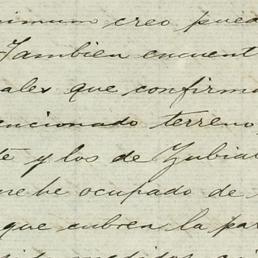 nimum creo pued
Tambien encuent
ales que confirma
encionado terreno
te y los de Zubia
me he ocupado de
que cubren la par